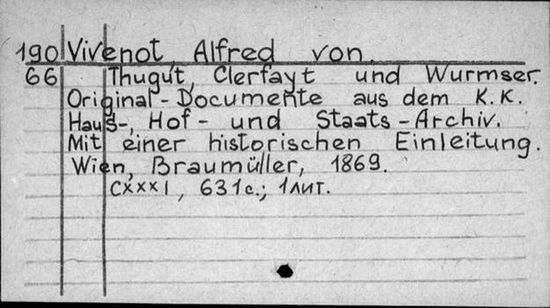 190 Vivenot, Alfred von.
66 Thugut, Clerfayt und Wurmser.
Original-Documente aus dem K.K.
Haus-, Hof- und Staats-Archiv.
Mit einer historischen Einleitung.
Wien, Braumüller, 1869.
CXXXI, 631с.; 1лит.